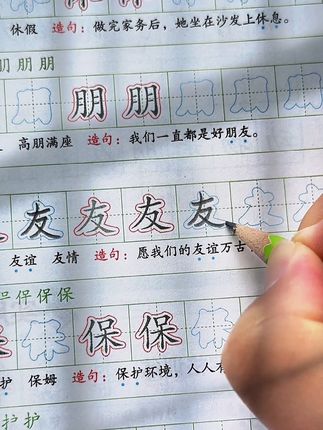 休假 造句：做完家务后，她坐在沙发上休息。
朋朋朋
朋朋
高朋满座 造句：我们一直都是好朋友。
友友友友
友谊 友情 造句：愿我们的友谊万古
保保
保保
护 保姆 造句：保护环境，人人有
护护